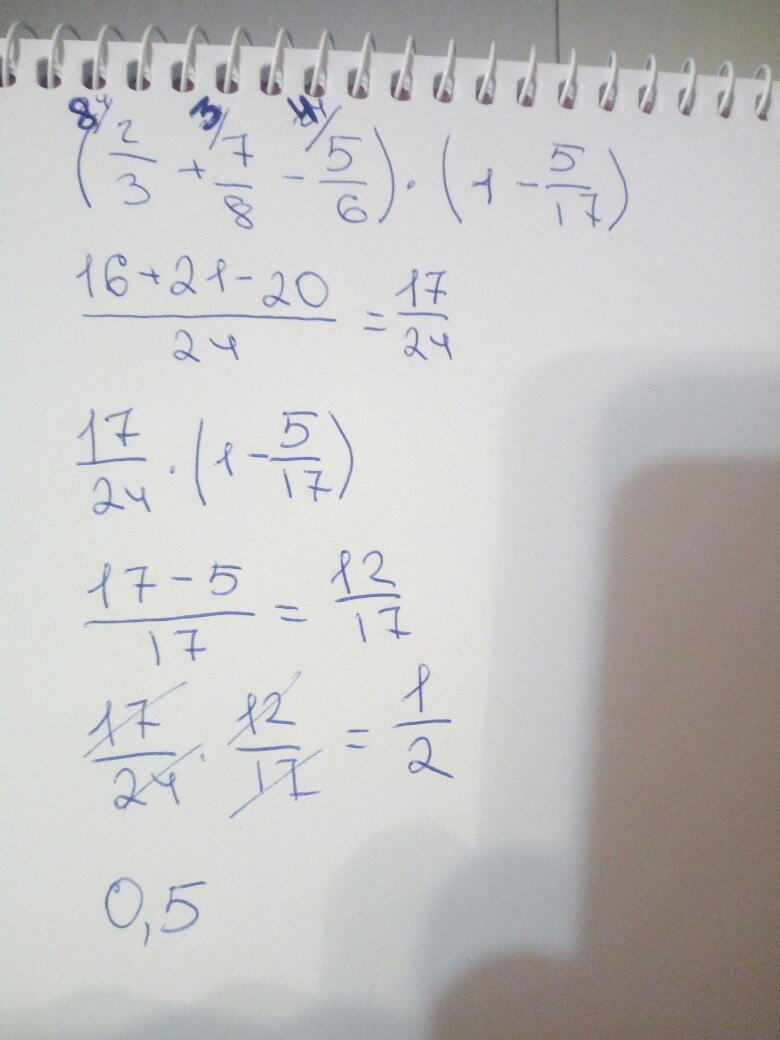 8 3 4
(2/3 + 7/8 - 5/6) · (1 - 5/17)
16+21-20/24 = 17/24
17/24 · (1 - 5/17)
17-5/17 = 12/17
17/24 · 12/17 = 1/2
0,5